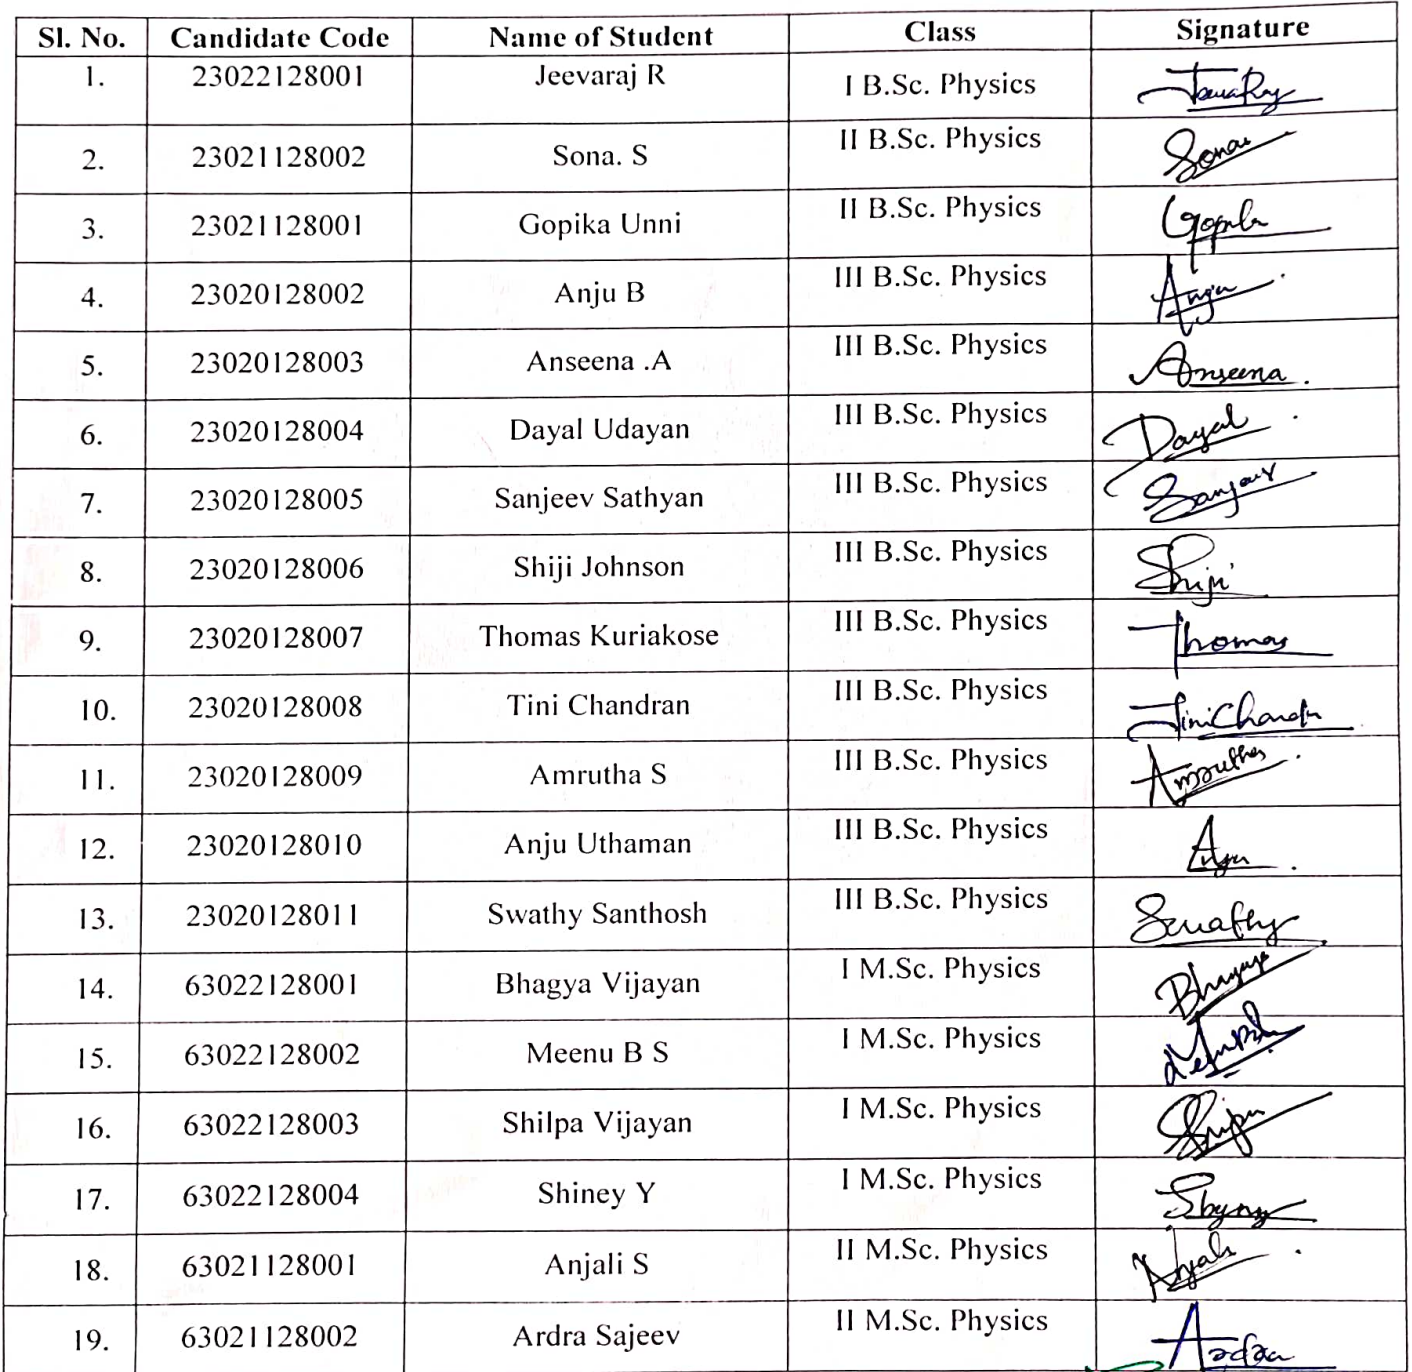 Sl. No. Candidate Code Name of Student Class Signature
1. 23022128001 Jeevaraj R I B.Sc. Physics JeevaRaj
2. 23021128002 Sona. S II B.Sc. Physics Sona
3. 23021128001 Gopika Unni II B.Sc. Physics Gopika
4. 23020128002 Anju B III B.Sc. Physics Anju
5. 23020128003 Anseena .A III B.Sc. Physics Anseena.
6. 23020128004 Dayal Udayan III B.Sc. Physics Dayal
7. 23020128005 Sanjeev Sathyan III B.Sc. Physics Sanjeev
8. 23020128006 Shiji Johnson III B.Sc. Physics Shiji
9. 23020128007 Thomas Kuriakose III B.Sc. Physics Thomas
10. 23020128008 Tini Chandran III B.Sc. Physics Tini
11. 23020128009 Amrutha S III B.Sc. Physics Amrutha
12. 23020128010 Anju Uthaman III B.Sc. Physics Anju
13. 23020128011 Swathy Santhosh III B.Sc. Physics Swathy
14. 63022128001 Bhagya Vijayan I M.Sc. Physics Bhagya
15. 63022128002 Meenu B S I M.Sc. Physics
16. 63022128003 Shilpa Vijayan I M.Sc. Physics
17. 63022128004 Shiney Y I M.Sc. Physics
18. 63021128001 Anjali S II M.Sc. Physics Anjali
19. 63021128002 Ardra Sajeev II M.Sc. Physics Aardra